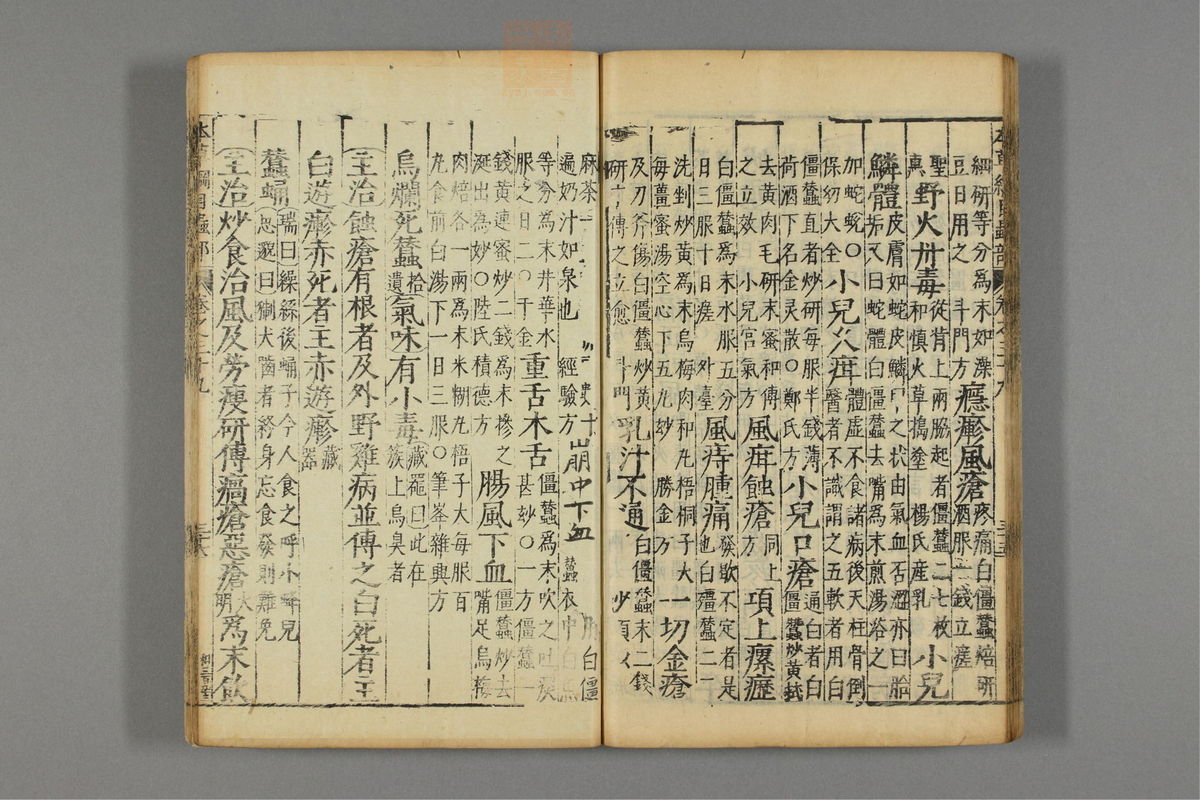 細研等分爲末如澡豆日用之 斗門方 癮瘮風瘡 疼痛白僵蠶焙研酒服一錢立瘥
聖 野火丹毒 從背上兩脇起者僵蠶二七枚和慎火草搗塗 楊氏產乳 小兒
鱗體 皮膚如蛇皮鱗甲之狀由氣血否澀亦曰胎垢又曰蛇體白僵蠶去嘴爲末煎湯浴之
加蛇蛻○保幼大全 小兒久疳 體虛不食諸病後天柱骨倒醫者不識謂之五軟者用白
僵蠶直者炒研每服半錢薄荷酒下名金灵散○鄭氏方 小兒口瘡 通白者白僵蠶炒黃拭
去黃肉毛研末蜜和傅之立效 小兒宮氣方 風疳蝕瘡 同上方 項上瘰癧
白僵蠶爲末水服五分日三服十日瘥 外臺 風痔腫痛 發歇不定者是也白殭蠶二
洗剉炒黃爲末烏梅肉和丸梧桐子大每薑蜜湯空心下五丸妙 勝金方 一切金瘡
及刀斧傷白僵蠶炒黃研末傅之立愈 斗門 乳汁不通 白僵蠶末二錢
麻茶一 遍奶汁如泉也 經驗方 崩中下血 白僵蠶衣中白魚
等分爲末井華水服之日二○千金 重舌木舌 僵蠶爲末吹之吐涎甚妙○一方僵蠶一
錢黃連蜜炒二錢爲末摻之涎出為妙○陸氏積德方 腸風下血 僵蠶炒去嘴足烏梅
肉焙各一兩爲末米糊丸梧子大每服百丸食前白湯下一日三服○筆峯雜興方
烏爛死蠶 拾遺 氣味有小毒 藏器曰此在簇上烏臭者
主治蝕瘡有根者及外野雞病並傅之白死者主
白遊瘮赤死者主赤遊瘮 藏器
蠶蛹 瑞曰繅絲後蛹子今人食之呼小蜂兒思邈曰猘犬嚙者終身忘食發則難免
主治炒食治風及勞瘦研傅瘑瘡惡瘡 大明 爲末飲
本草綱目蟲部 卷之三十九